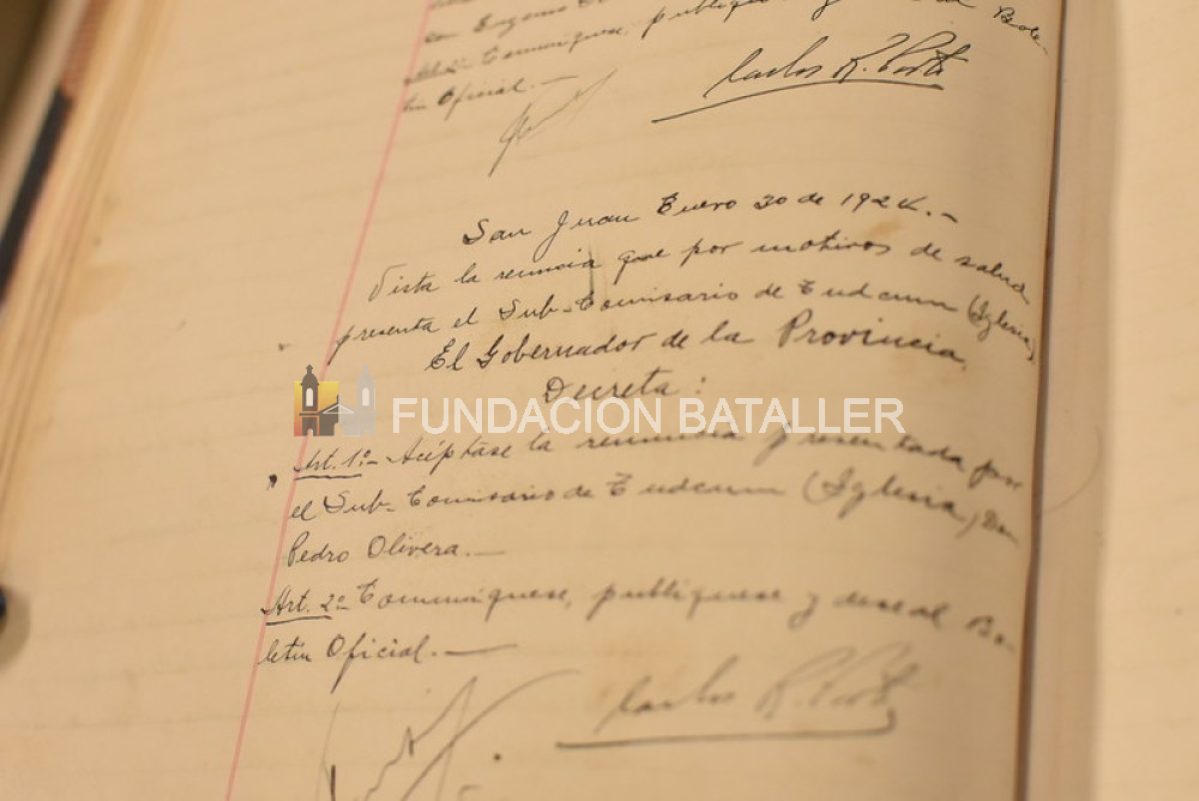 en Eugenio
Comuníquese, publíquese y al Bole-
tín Oficial.-
Carlos R. Porto
San Juan Enero 30 de 1924.-
Vista la renuncia que por motivos de salud
presenta el Sub-Comisario de Tudcum (Iglesia)
El Gobernador de la Provincia,
Decreta:
FUNDACIÓN BATALLER
Art. 1º- Acéptase la renuncia presentada por
el Sub-Comisario de Tudcum (Iglesia) Don
Pedro Olivera.-
Art. 2º- Comuníquese, publíquese y dese al Bo-
letín Oficial.-
Carlos R. Porto